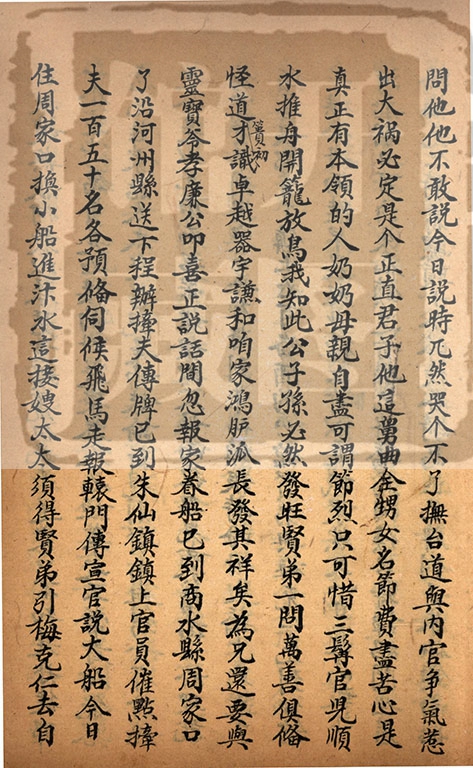 問他他不敢說今日說時兀然哭个不了撫台道與內官爭氣惹
出大禍必定是个正直君子他這舅曲全甥女名節費盡苦心是
真正有本領的人奶奶母親自盡可謂節烈只可惜三髯官児順
水推舟開籠放鳥我知此公子孫必然發旺賢弟一問萬善俱備
怪道才識簣初卓越器宇謙和咱家鴻胪派長發其祥矣為兄還要與
靈寶爷孝廉公叩喜正説話間忽報家眷船已到商水縣周家口
了沿河州縣送下程辦撞夫傳牌已到朱仙鎮鎮上官員催點撞
夫一百五十名各預俻伺候飛馬走報轅門傳宣官説大船今日
住周家口換小船進汴水這接嫂太太須得賢弟引梅克仁去自